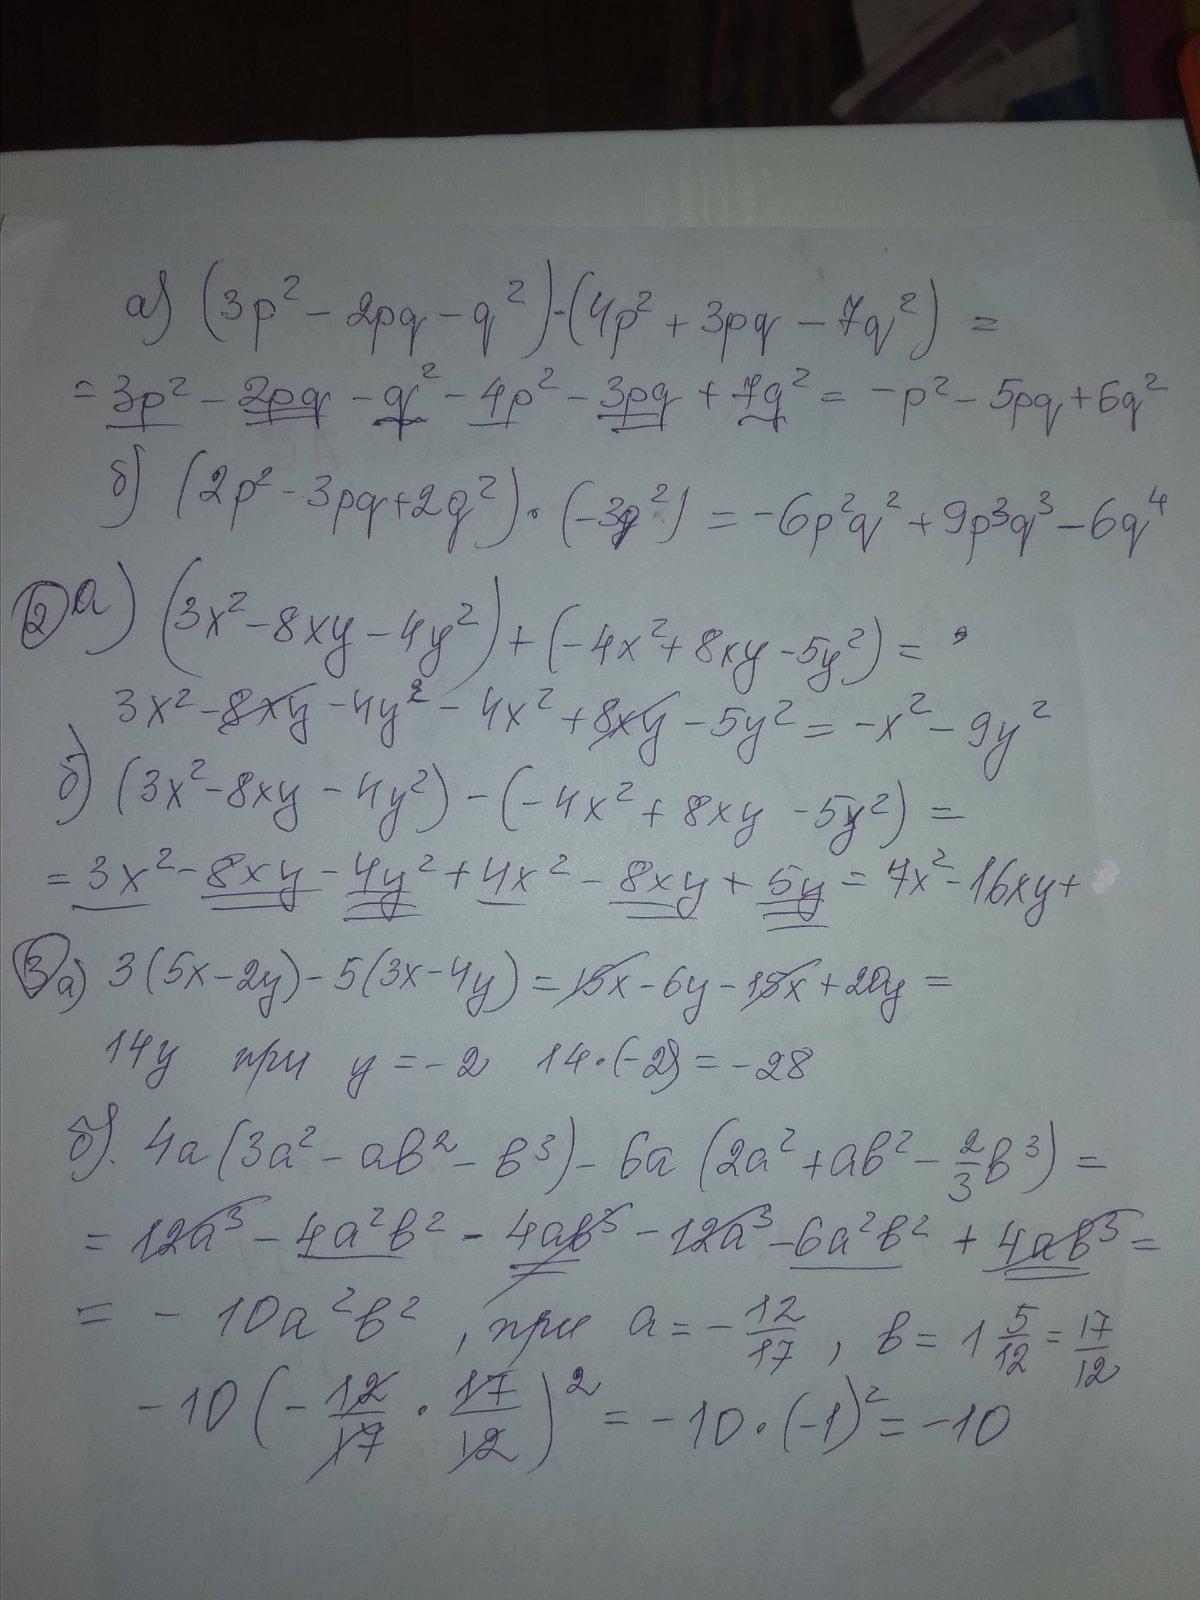 а) (3p² - 2pq - q²) - (4p² + 3pq - 7q²) =
= 3p² - 2pq - q² - 4p² - 3pq + 7q² = -p² - 5pq + 6q²
б) (2p² - 3pq + 2q²) · (-3q²) = -6p²q² + 9p3q³ - 6q⁴
② а) (3x² - 8xy - 4y²) + (-4x² + 8xy - 5y²) =
3x² - 8xy - 4y² - 4x² + 8xy - 5y² = -x² - 9y²
б) (3x² - 8xy - 4y²) - (-4x² + 8xy - 5y²) =
= 3x² - 8xy - 4y² + 4x² - 8xy + 5y = 7x² - 16xy +
③ а) 3(5x - 2y) - 5(3x - 4y) = 15x - 6y - 15x + 20y =
14y при y = -2 14·(-2) = -28
б). 4a(3a² - ab² - b³) - 6a(2a² + ab² - 2/3 b³) =
= 12a³ - 4a²b² - 4ab³ - 12a³ - 6a²b² + 4ab³ =
= - 10a²b² , при a = - 12/17 , b = 1 5/12 = 17/12
-10(- 12/17 · 17/12)² = -10·(-1)² = -10